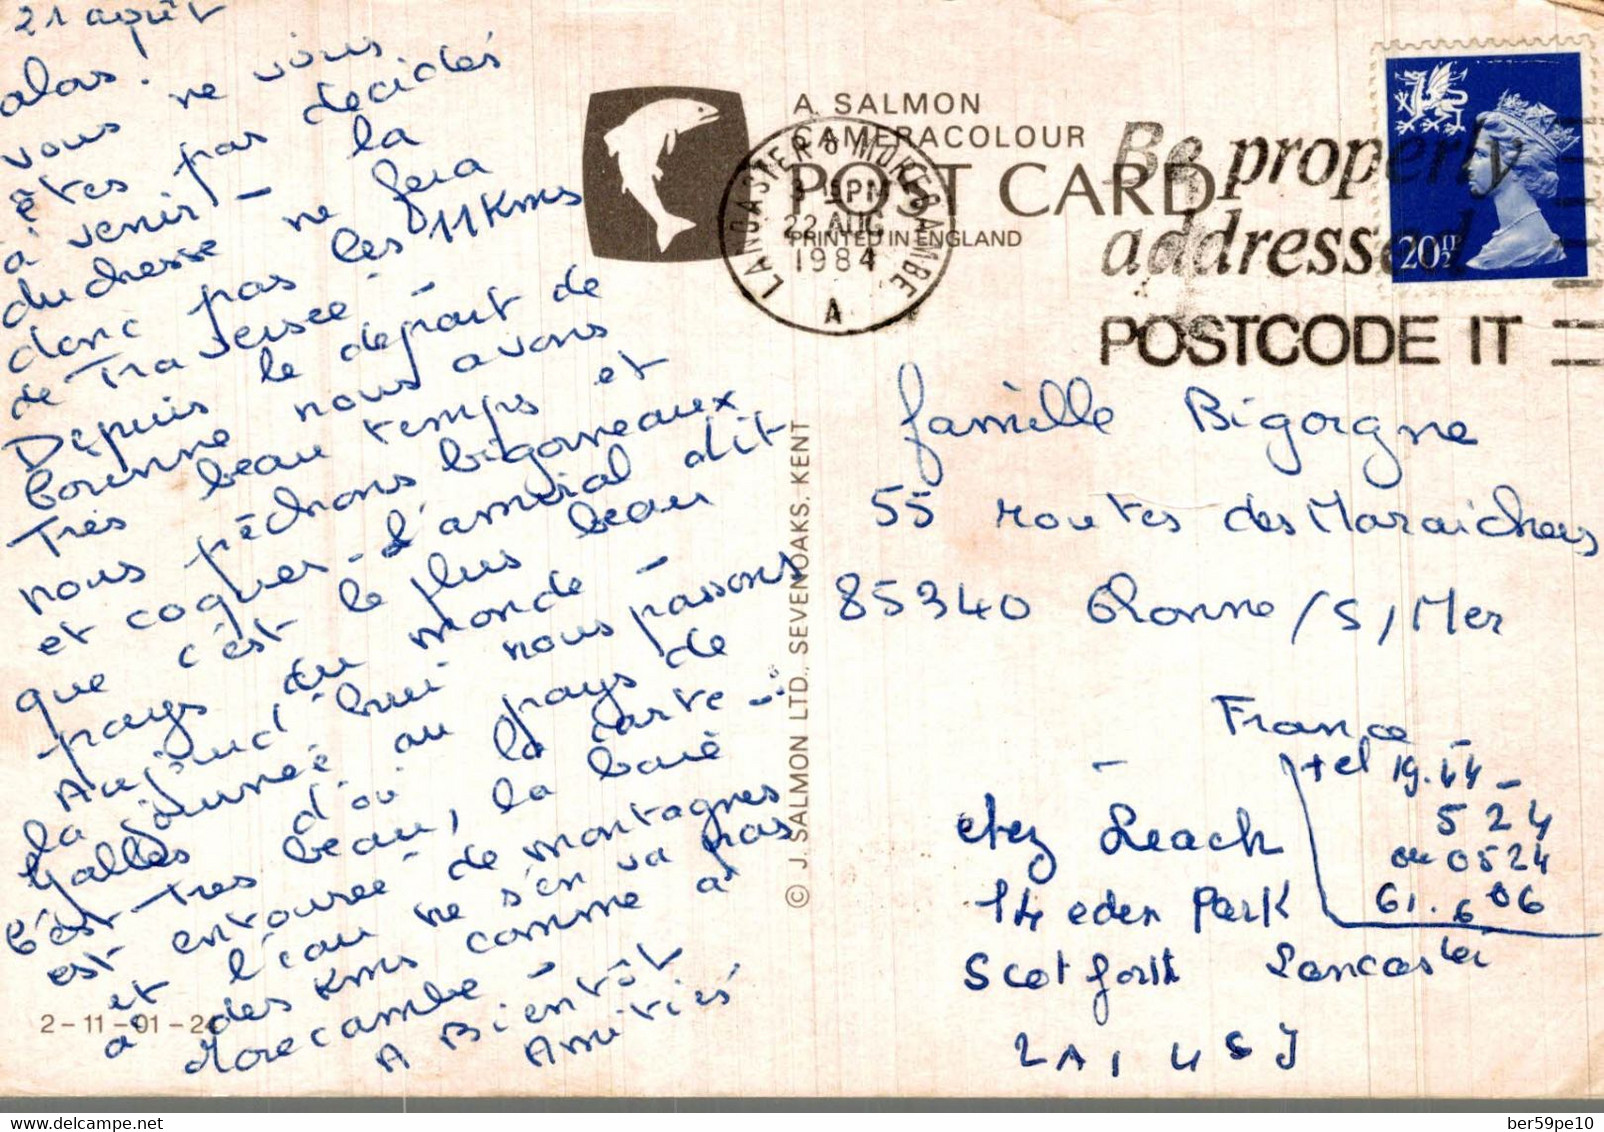 21 août
alors !
vous ne vous
êtes pas decidés
à venir - la
duchesse ne fera
donc pas les 11 Kms
de Traversée -
Depuis le départ de
Corinne nous avons
Très beau temps et
nous pêchons bigorneaux
et coques - l'amiral dit
que c'est le plus beau
pays du monde -
Aujourd'hui nous passons
la journée au pays de
Galles d'où la carte -
C'est Très beau, la baie
est entourée de montagnes
et l'eau ne s'en va pas
à des Kms comme à
Morecambe -
A Bientôt
Amitiés
2-11-01-2
A. SALMON
CAMERACOLOUR
POST CARD
PRINTED IN ENGLAND
LANCASTER & MORECAMBE
3 15 PM
22 AUG
1984
A
Be properly
addressed
POSTCODE IT
20½P
© J. SALMON LTD., SEVENOAKS, KENT
famille Bigorgne
55 routes des Maraichers
85340 Olonne/S/Mer
France
tel 19.44-
524
ou 0524
61.606
chez Leach
14 eden Park
Scotforth Lancaster
LA1 4SJ
delcampe.net
ber59pe10